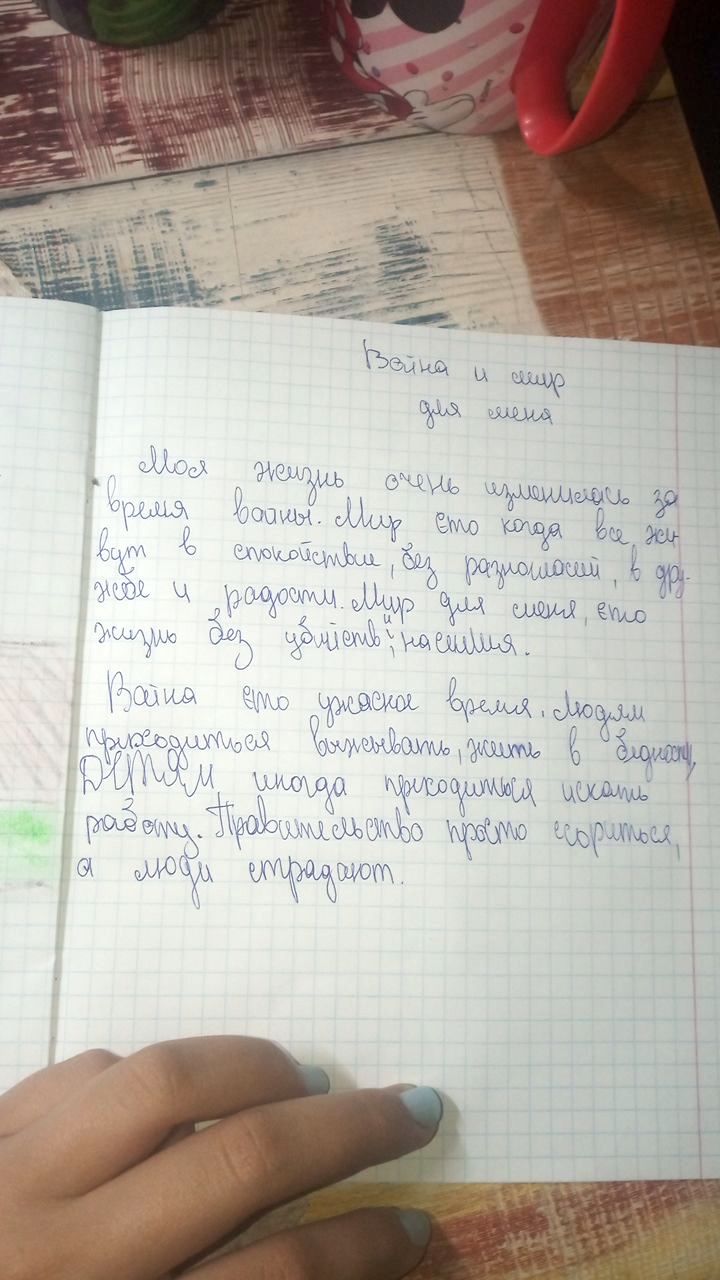 Война и мир
для меня
Моя жизнь очень изменилась за
время войны. Мир ето когда все жи
вут в спокойствие, без разногласий, в дру-
жбе и радости. Мир для меня, ето
жизнь без убийств и насилия.
Война ето ужасное время. Людям
приходиться выжывать, жить в бедности,
ДЕТЯМ иногда приходиться искать
работу. Правительство просто ссориться,
а люди страдают.